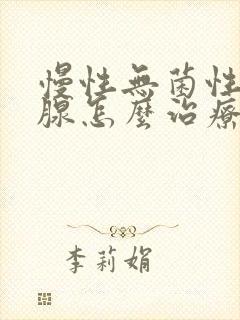 慢性無菌性
腺怎麼治療
李莉娟